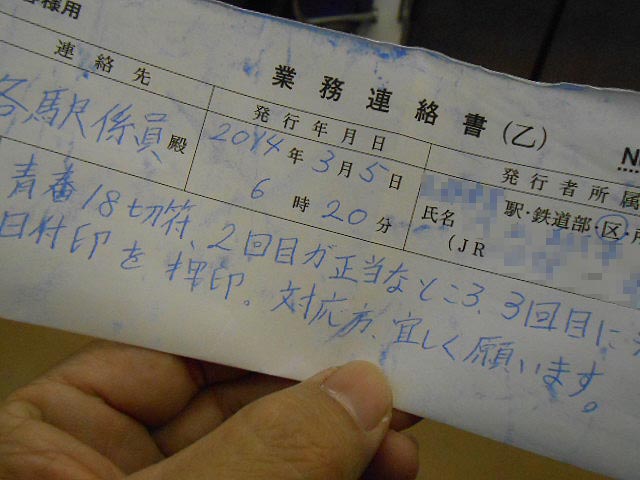 客様用
業務連絡書(乙)
N
連絡先
発行年月日
発行者所属
各駅係員殿
2014年3月5日
6時20分
駅・鉄道部・区・所
氏名
(JR
青春18切符、2回目が正当なところ、3回目に
日付印を押印。対応方、宜しく願います。